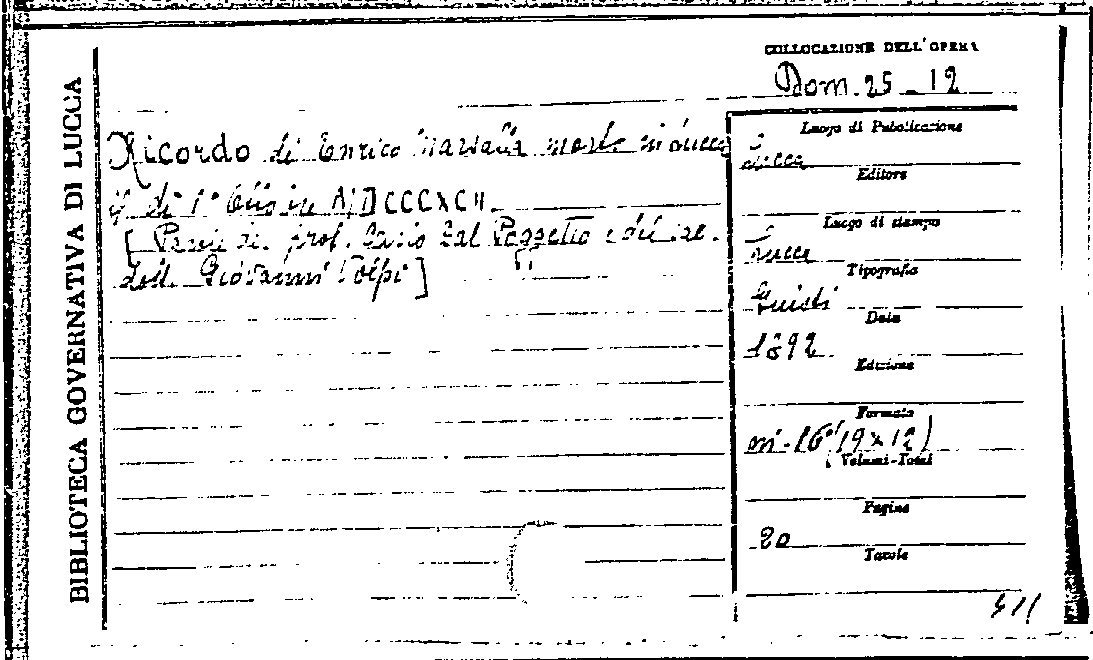 BIBLIOTECA GOVERNATIVA DI LUCCA
COLLOCAZIONE DELL'OPERA
Dom. 25 - 12
Ricordo di Enrico morto in Lucca
il dì 1° MDCCCXCII.
[Parole del prof. Dal Poggetto e del
dott. Giovanni Volpi]
Luogo di Pubblicazione
Lucca
Editore
Luogo di stampa
Lucca
Tipografia
Giusti
Data
1892
Edizione
Formato
in-16° (19 x 12)
Volumi-Tomi
Pagine
20
Tavole